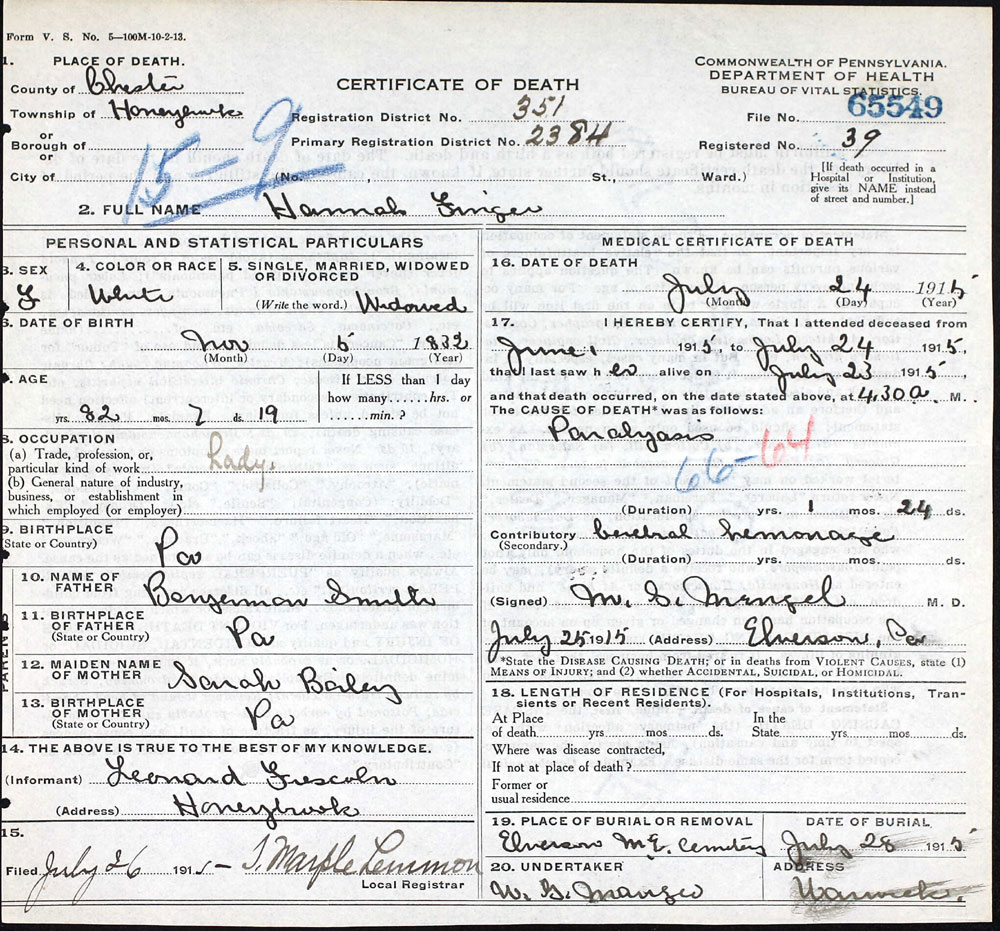 Form V. S. No. 5—100M-10-2-13.
1. PLACE OF DEATH.
County of Chester
Township of Honeybrook
or
Borough of
or
City of
CERTIFICATE OF DEATH
Registration District No. 351
Primary Registration District No. 2384
(No. , St., Ward.)
15-9
COMMONWEALTH OF PENNSYLVANIA.
DEPARTMENT OF HEALTH
BUREAU OF VITAL STATISTICS.
File No. 65549
Registered No. 39
[If death occurred in a
Hospital or Institution,
give its NAME instead
of street and number.]
2. FULL NAME Hannah
PERSONAL AND STATISTICAL PARTICULARS
3. SEX
F
4. COLOR OR RACE
White
5. SINGLE, MARRIED, WIDOWED
OR DIVORCED
(Write the word.) Widowed
6. DATE OF BIRTH
Nov 5 1832
(Month) (Day) (Year)
7. AGE
yrs. 82 mos. 7 ds. 19
If LESS than 1 day
how many.....hrs. or
.....min.?
8. OCCUPATION
(a) Trade, profession, or,
particular kind of work Lady
(b) General nature of industry,
business, or establishment in
which employed (or employer).
9. BIRTHPLACE
(State or Country) Pa
PARENTS
10. NAME OF
FATHER Benjerman Smith
11. BIRTHPLACE
OF FATHER
(State or Country) Pa
12. MAIDEN NAME
OF MOTHER Sarah Baley
13. BIRTHPLACE
OF MOTHER
(State or Country) Pa
14. THE ABOVE IS TRUE TO THE BEST OF MY KNOWLEDGE.
(Informant) Leonard Frescoln
(Address) Honeybrook
15.
Filed July 26 1915- T. Marple Lemmon
Local Registrar
MEDICAL CERTIFICATE OF DEATH
16. DATE OF DEATH
July 24 1915
(Month) (Day) (Year)
17. I HEREBY CERTIFY, That I attended deceased from
June 1 1915, to July 24 1915,
that I last saw h er alive on July 23 1915,
and that death occurred, on the date stated above, at 4,30a. M.
The CAUSE OF DEATH* was as follows:
Paralyasis
66-64
(Duration) yrs. 1 mos. 24 ds.
Contributory Cerebral hemorrage
(Secondary.)
(Duration) yrs. mos. ds.
(Signed) M. S. Mengel M. D.
July 25 1915 (Address) Elverson, Pa
*State the DISEASE CAUSING DEATH; or in deaths from VIOLENT CAUSES, state (1)
MEANS OF INJURY; and (2) whether ACCIDENTAL, SUICIDAL, or HOMICIDAL.
18. LENGTH OF RESIDENCE (For Hospitals, Institutions, Tran-
sients or Recent Residents).
At Place In the
of death yrs. mos. ds. State yrs. mos. ds.
Where was disease contracted,
If not at place of death?
Former or
usual residence
19. PLACE OF BURIAL OR REMOVAL
Elverson M.E. Cemetery
DATE OF BURIAL
July 28 1915
20. UNDERTAKER
W. G.
ADDRESS
Warwick.